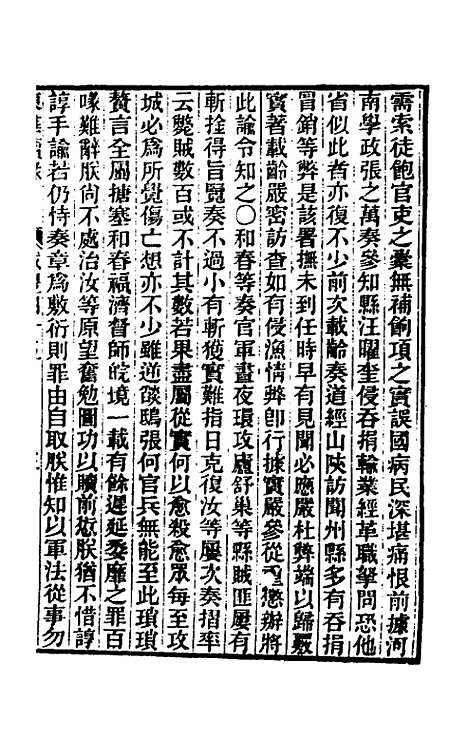 需索徒飽官吏之橐無補餉項之實誤國病民深堪痛恨前據河
南學政張之萬奏參知縣汪曜奎侵吞捐輸業經革職拏問恐他
省似此者亦復不少前次載齡奏道經山陝訪聞州縣多有吞捐
冒銷等弊是該署撫未到任時早有見聞必應嚴杜弊端以歸覈
實著載齡嚴密訪查如有侵漁情弊卽行據實嚴參從重懲辦將
此諭令知之○和春等奏官軍晝夜環攻廬舒巢等縣賊匪屢有
斬拴得旨覽奏不過小有斬獲實難指日克復汝等屢次奏摺率
云斃賊數百或不計其數若果盡屬從實何以愈殺愈眾每至攻
城必爲所覺傷亡想亦不少雖逆燄鴟張何官兵無能至此瑣瑣
贅言全屬搪塞和春福濟督師皖境一載有餘遲延委靡之罪百
喙難辭朕尙不處治汝等原望奮勉圖功以贖前愆朕猶不惜諄
諄手諭若仍恃奏章爲敷衍則罪由自取朕惟知以軍法從事勿